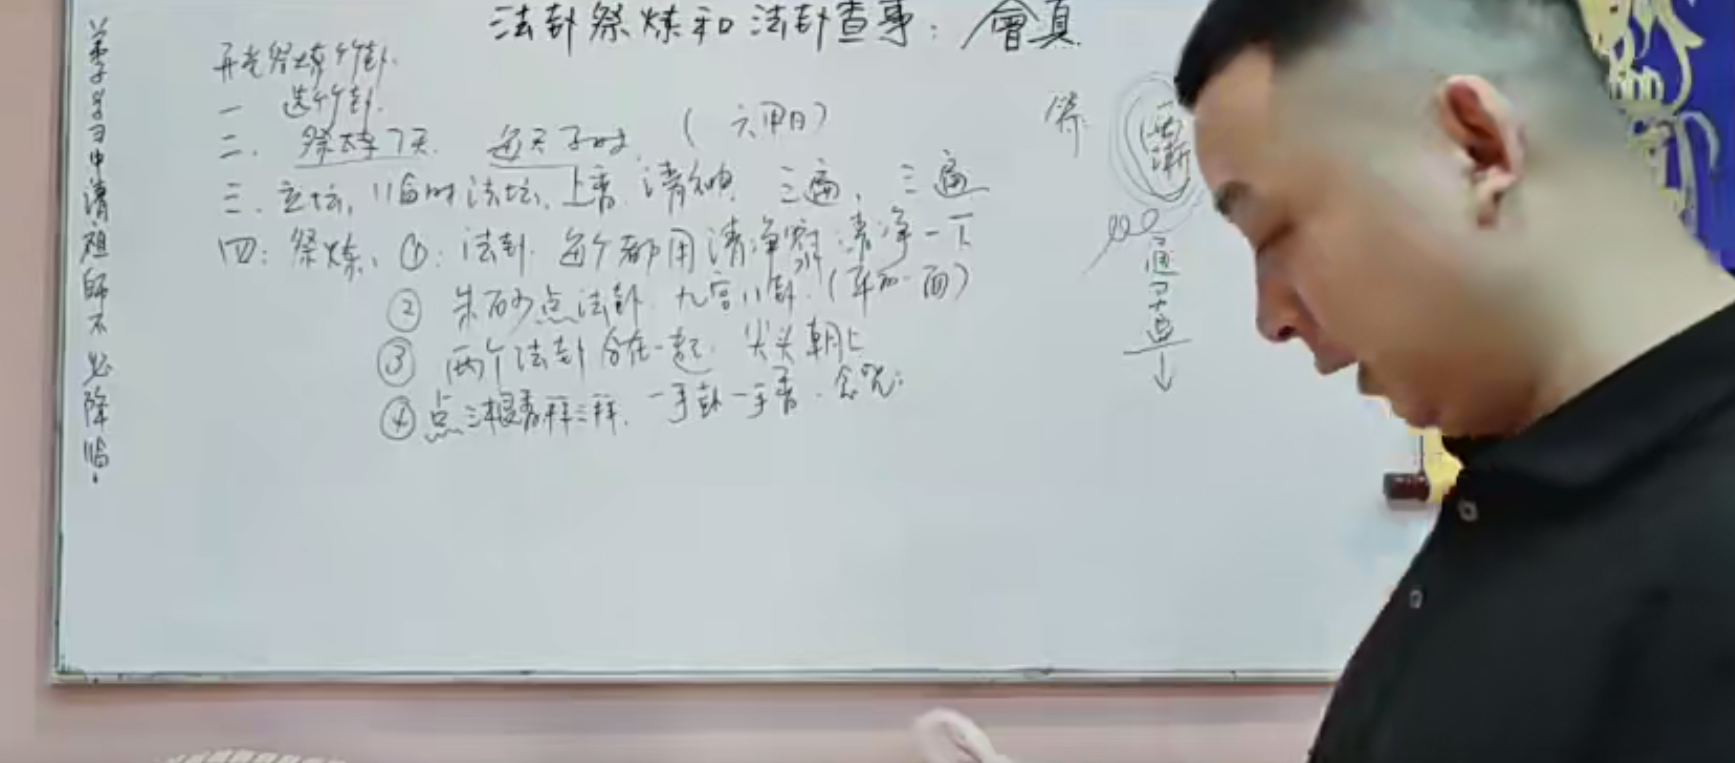 法卦祭炼和法卦查事：會真
开光祭炼竹卦.
一 选竹卦.
二. 祭炼7天. 每天子时. (六甲日)
三. 立坛, 临时法坛, 上香. 请神. 三遍, 三遍
四: 祭炼、①: 法卦. 每个都用清净 水 清净一下
② 朱砂点法卦. 九宫八卦. (平的一面)
③ 两个法卦合在一起. 尖头朝上
④ 点三根香拜三拜. 一手卦一手香. 念咒:
弟子学习中請祖師不必降临.